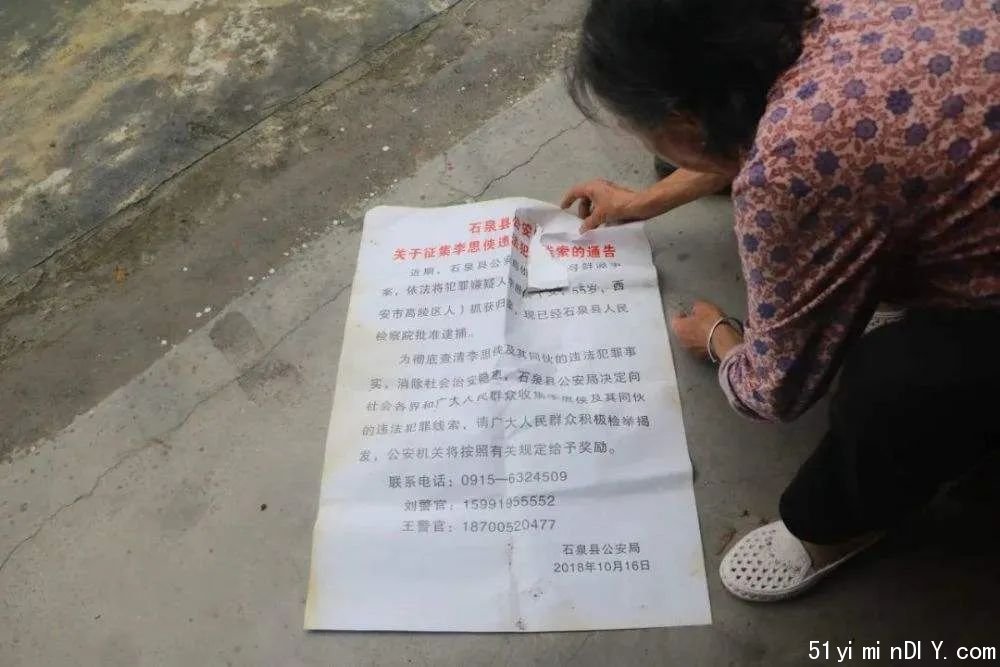 石泉县公安
关于征集李思侠违法犯 线索的通告
近期，石泉县公安局
案，依法将犯罪嫌疑人 55岁，西
安市高陵区人）抓获归案，现已经石泉县人民
检察院批准逮捕。
为彻底查清李思侠及其同伙的违法犯罪事
实，消除社会治安隐患，石泉县公安局决定向
社会各界和广大人民群众收集李思侠及其同伙
的违法犯罪线索，请广大人民群众积极检举揭
发，公安机关将按照有关规定给予奖励。
联系电话：0915—6324509
刘警官：15991955552
王警官：18700520477
石泉县公安局
2018年10月16日
51yiminDIY.com